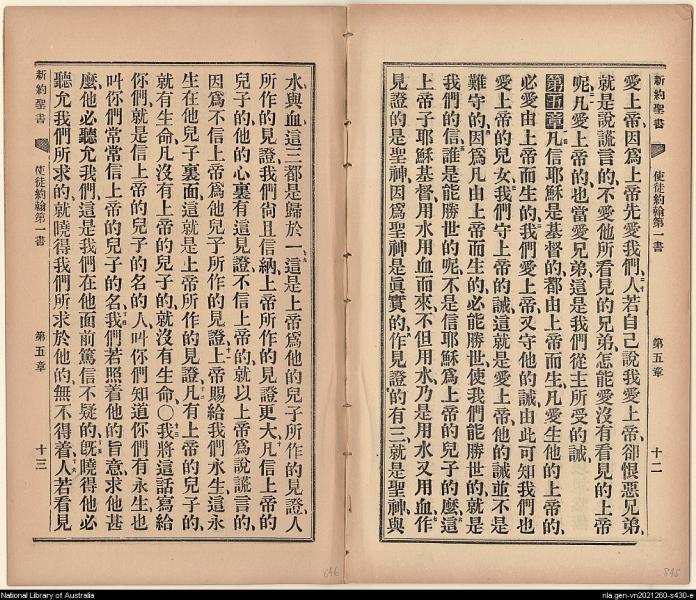 新約聖書
使徒約翰第一書
第五章
十二
愛上帝、因爲上帝先愛我們、人若自己說我愛上帝、卻恨惡兄弟、
就是說謊言的、不愛他所看見的兄弟、怎能愛沒有看見的上帝
呢、凡愛上帝的、也當愛兄弟、這是我們從主所受的誡、
第五章 凡信耶穌是基督的、都由上帝而生、凡愛生他的上帝的、
必愛由上帝而生的、我們愛上帝、又守他的誡、由此可知我們也
愛上帝的兒女、我們守上帝的誡、這就是愛上帝、他的誡並不是
難守的、因爲凡由上帝而生的、必能勝世、使我們能勝世的、就是
我們的信、誰是能勝世的呢、不是信耶穌爲上帝的兒子的麼、這
上帝子耶穌基督、用水用血而來、不但用水、乃是用水又用血、作
見證的是聖神、因爲聖神是眞實的、作見證的有三、就是聖神、與
水、與血、這三都是歸於一、這是上帝爲他的兒子所作的見證、人
所作的見證、我們尙且信納、上帝所作的見證更大、凡信上帝的
兒子的、他的心裏有這見證、不信上帝的、就以上帝爲說謊言的、
因爲不信上帝爲他兒子所作的見證、上帝賜給我們永生、這永
生在他兒子裏面、這就是上帝所作的見證、凡有上帝的兒子的、
就有生命、凡沒有上帝的兒子的、就沒有生命、○我將這話寫給
你們、就是信上帝的兒子的名的人、叫你們知道你們有永生、也
叫你們常常信上帝的兒子的名、我們若照着他的旨意求他甚
麼、他必聽允我們、這是我們在他面前篤信不疑的、旣曉得他必
聽允我們所求的、就曉得我們所求於他的、無不得着、人若看見
新約聖書
使徒約翰第一書
第五章
十三
846
845
National Library of Australia
nla.gen-vn2021260-s430-e